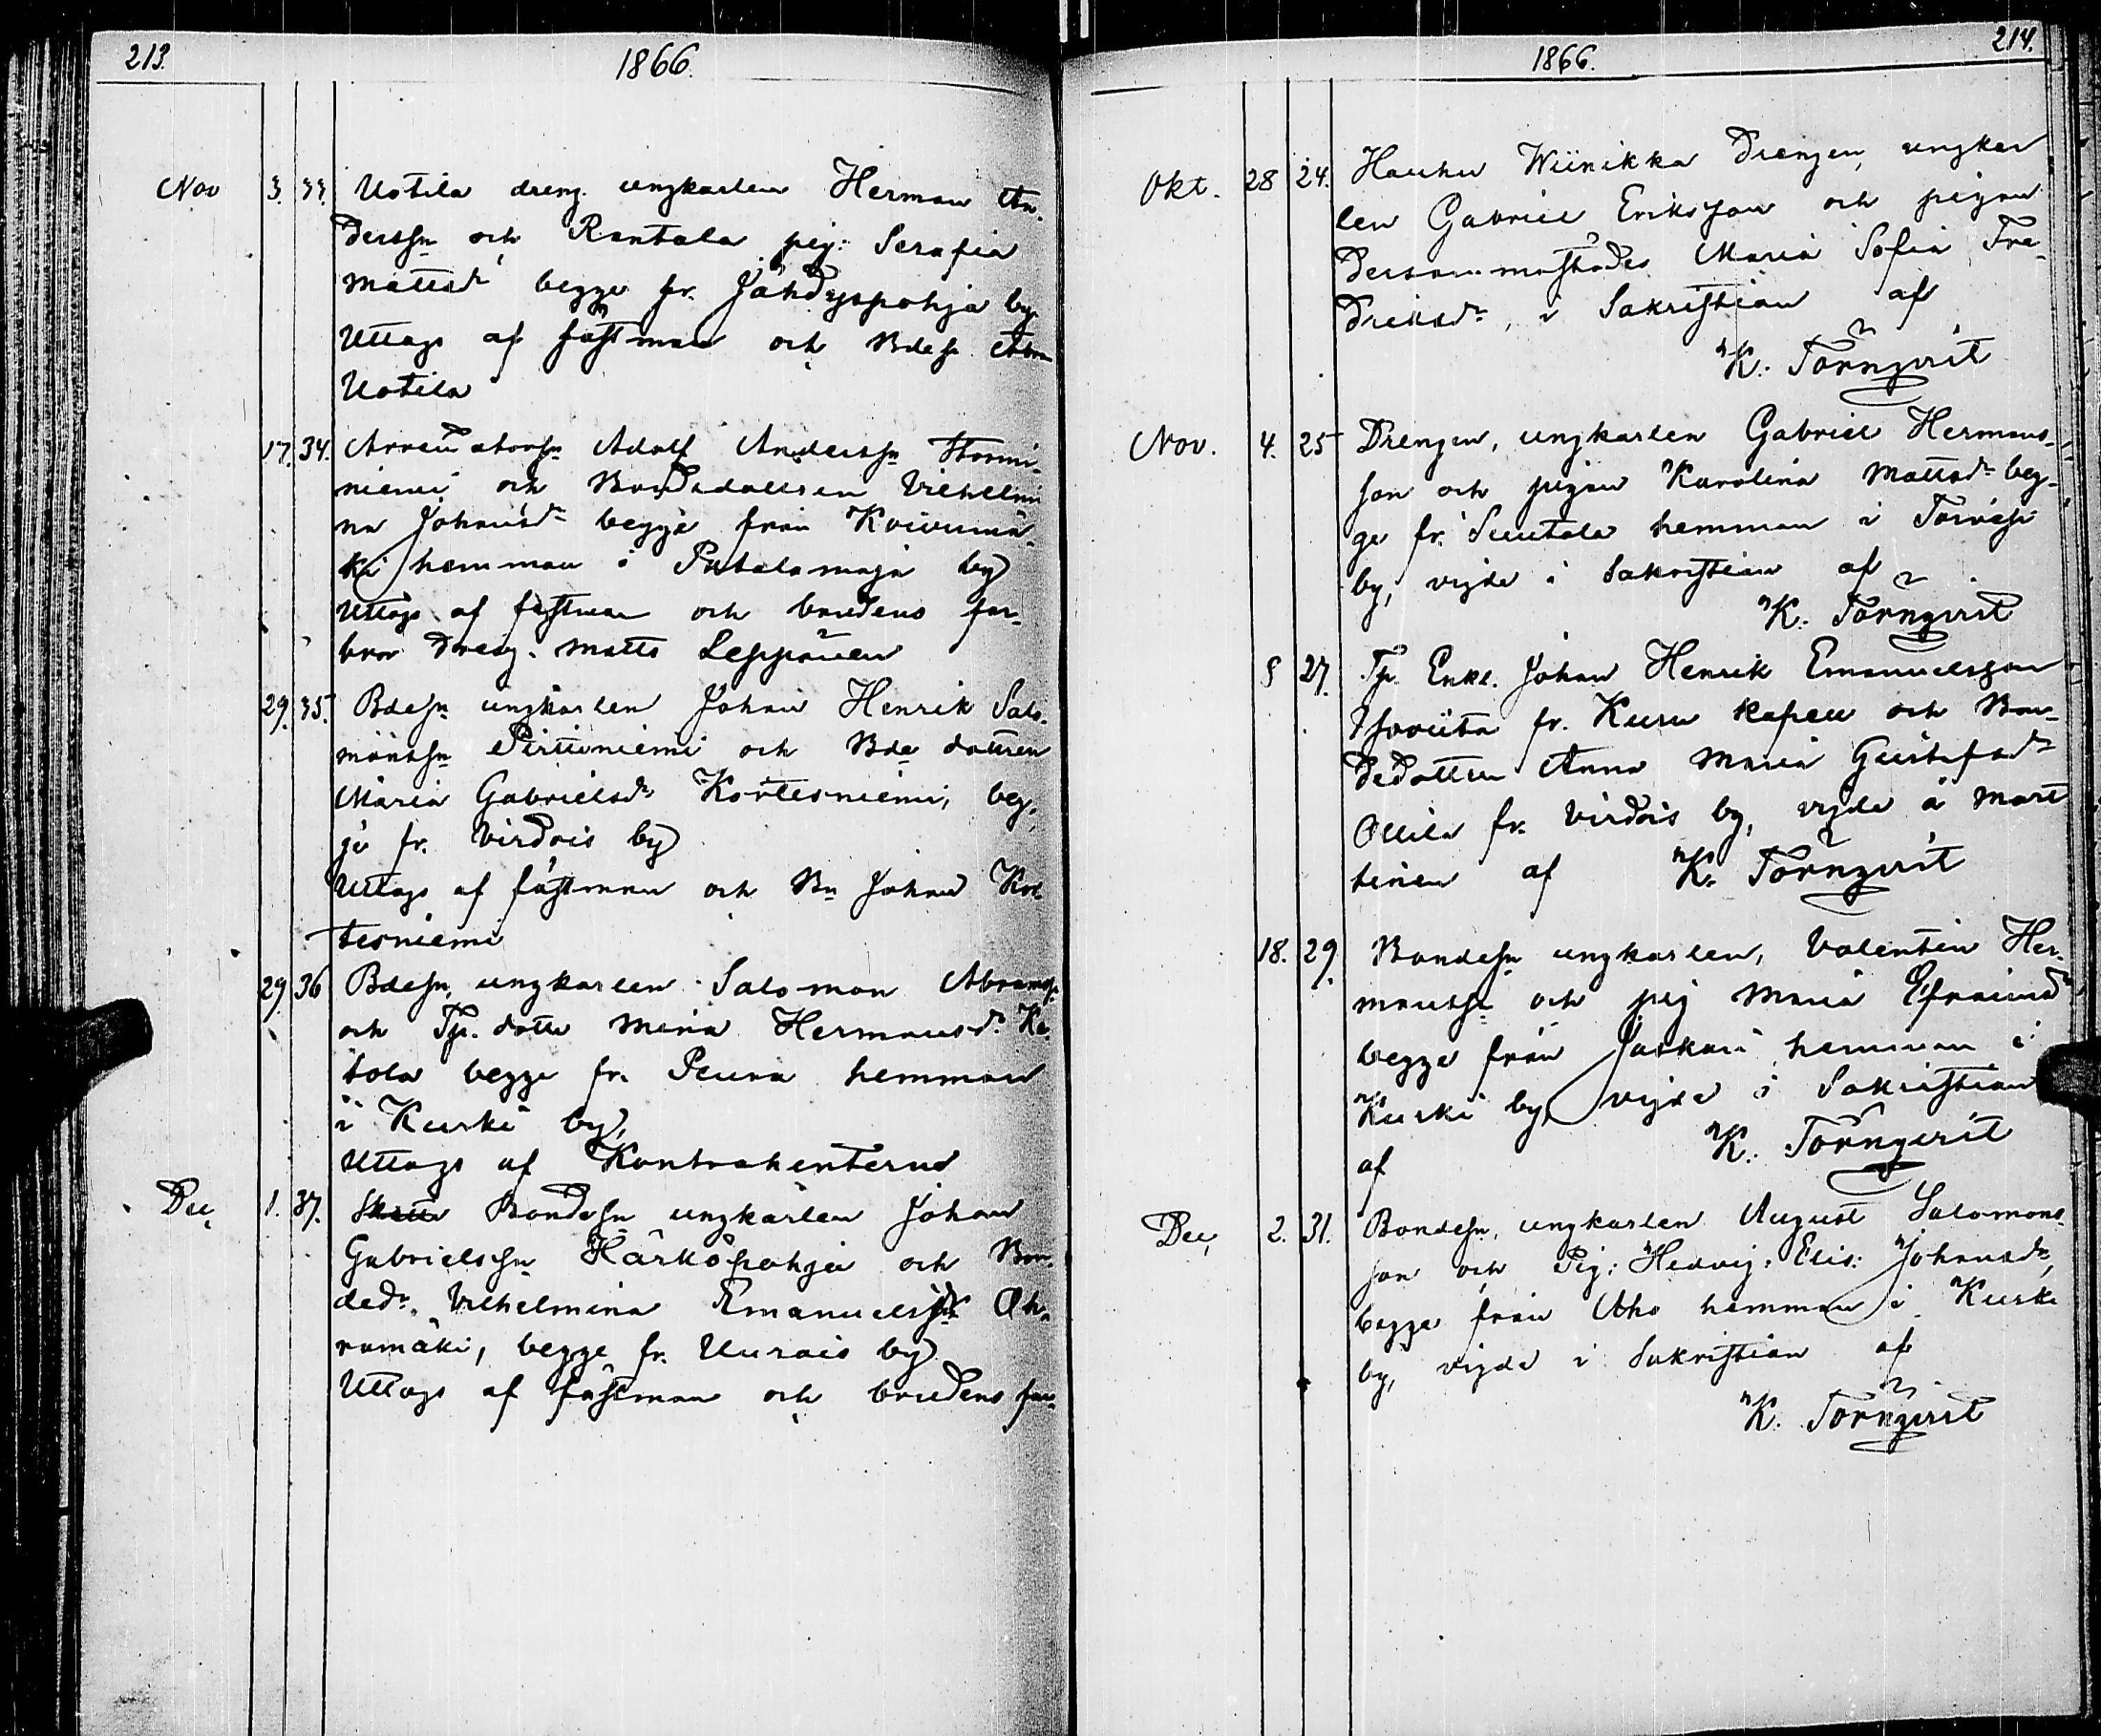 213.
1866.
Nov 3. 33. Uotila dreng. ungkarlen Herman An-
derssn och Rantala pig: Serafia
Mattsdr begge fr. Jähdyspohja by
Uttags af fästman och Bdesn
Uotila
17. 34. Arrendatorsn Adolf Anderssn
niemi och Bondedottren Vilhelmi
na Johansdr begge från Koivumä-
ki hemman i by
Uttogs af fästman och brudens far-
bror Dreng. Matts Leppänen
29. 35. Bdesn ungkarlen Johan Henrik Salo-
monssn Pirttiniemi och Bde dottren
Maria Gabrielsdr Kortesniemi, beg-
ge fr. Virdois by
Uttags af fästman och Bn Johan Kor-
tesniemi
29. 36 Bdesn, ungkarlen Salomon Abramss.
och Tp. dottr Maria Hermansdr
tola begge fr. Peura hemman
i Kurki by,
Uttags af Kontrahenterne
Dec, 1. 37. Bondesn ungkarlen Johan
Gabrielssn Härköpohja och Bon-
dedr. Vilhelmina Emanuelsdr
ramäki, begge fr. Uurais by
Uttags af fästman och brudens far
214.
1866.
Okt. 28 24. Hauhu Wiinikka Drengen, ungkar
len Gabriel Eriksson och pigan
Maria Sofia Fre-
driksdr, i Sakristian af
K. Törnqvist
Nov. 4. 25 Drengen, ungkarlen Gabriel Hermans-
son och pigan Karolina Mattsdr beg-
ge fr. Suutala hemman i Toivesi
by, vigde i Sakristian af
K. Törnqvist
8 27. Tp. Enkl. Johan Henrik Emanuelsson
fr. Kuru kapell och Bon-
dedottren Anna Maria Gustafsdr
Ollila fr. Virdois by, vigde å Mart
tinen af K. Törnqvist
18. 29. Bondesn ungkarlen, Valentin Her-
manssn och pig Maria Efraimsdr
begge från Jaskari hemman i
Kurki by, vigde i Sakristian
af K. Törnqvist
Dec, 2. 31. Bondesn, ungkarlen August Salomons-
son och Pig: Hedvig: Elis: Johansdr,
begge från Aho hemman i Kurki
by, vigde i Sakristian af
K. Törnqvist